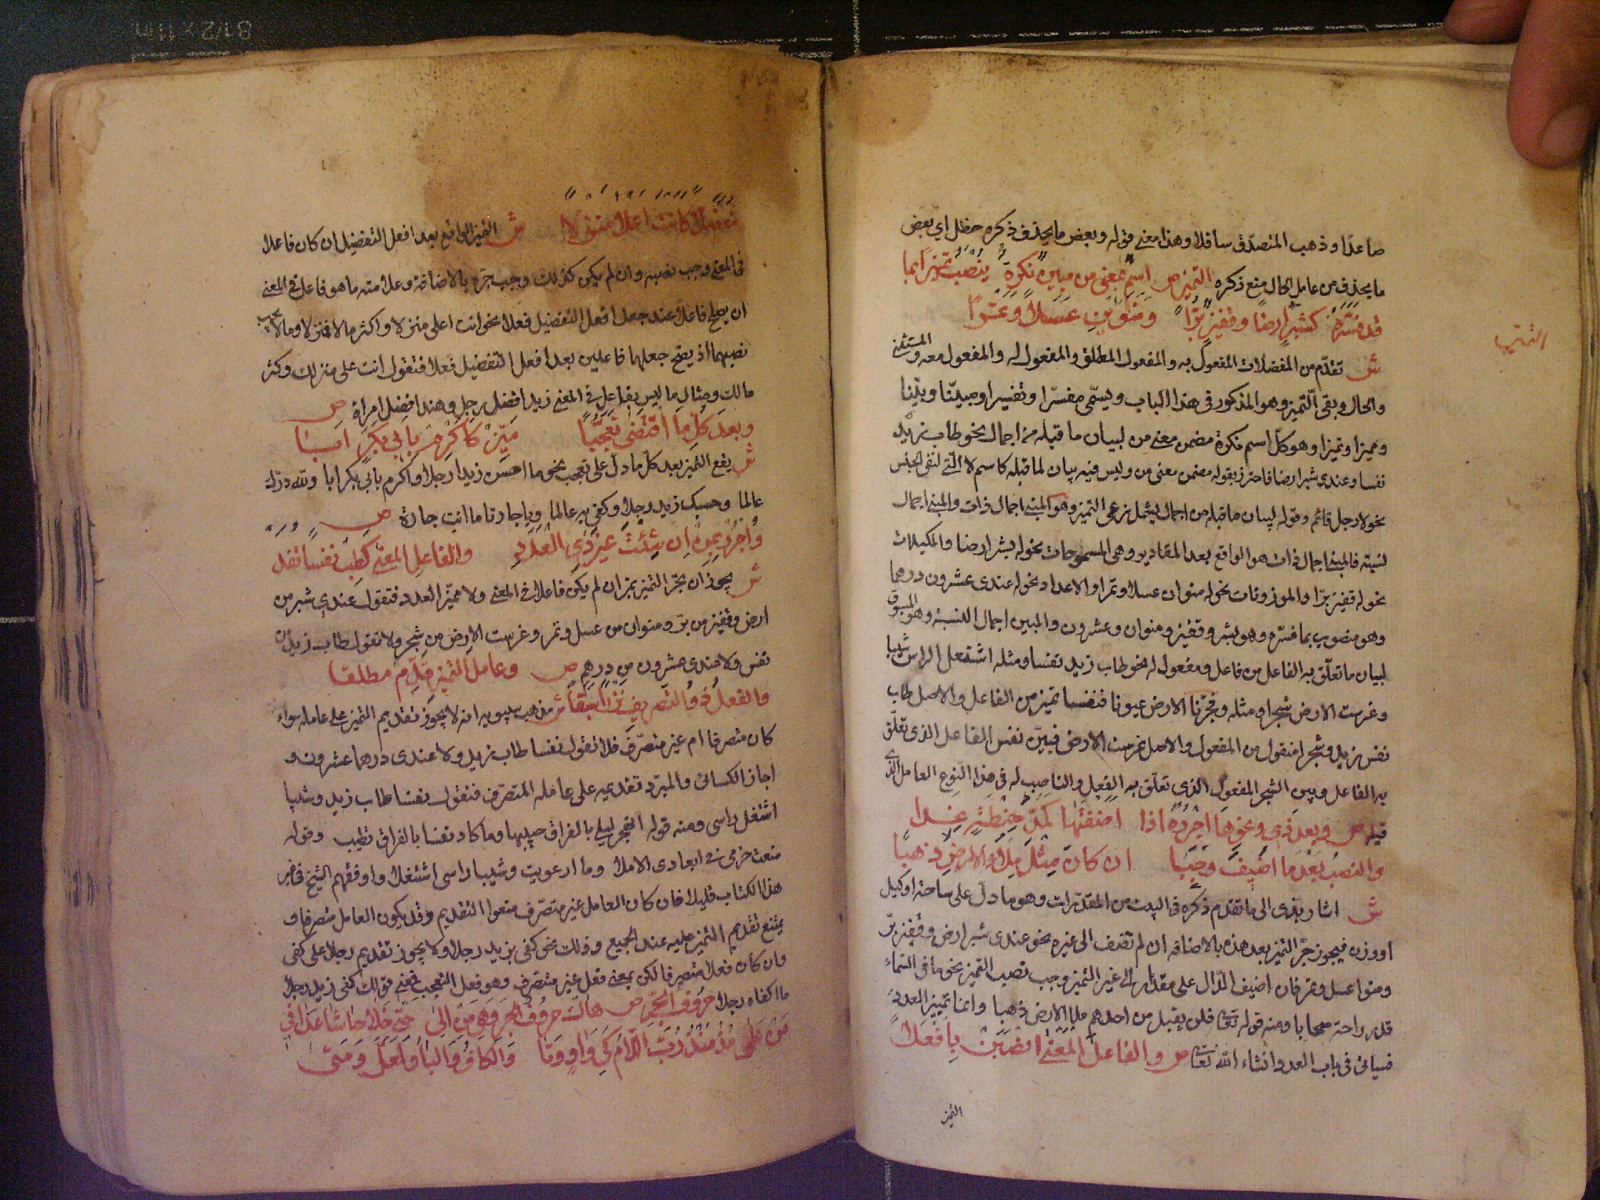 صاعدا وذهب المتصدق سافلا وهذا معنى قوله وبعض ما يحذف ذكره حظل اى بعض
ما يحذف من عامل الحال منع ذكره التميز ص اسم بمعنى من مبين نكرة ينصب تميزا بما
قد فسره كشبر ارضا وقفيز برا ومنوين عسلا وتمرا
ش تقدم من الفضلات المفعول به والمفعول المطلق والمفعول له والمفعول معه والمستثنى
والحال وبقى التميز وهو المذكور فى هذا الباب ويسمى مفسرا وتفسيرا ومبينا وتبيينا
ومميزا وتميزا وهو كل اسم نكرة مضمن معنى من لبيان ما قبله من اجمال نحو طاب زيد
نفسا وعندى شبر ارضا فاحترز بقوله مضمن معنى من وليس فيه بيان لما قبله كاسم لا التى لنفى الجنس
نحو لا رجل قائم وقوله لبيان ما قبله من اجمال يشمل نوعى التميز وهو المبين اجمال ذات والمبين اجمال
نسبة فالمبين اجمال ذات هو الواقع بعد المقادير وهى الممسوحات نحو له شبر ارضا والمكيلات
نحو له قفيز برا والموزونات نحو له منوان عسلا وتمرا والاعداد نحو له عندى عشرون درهما
وهو منصوب بما فسره وهو شبر وقفيز ومنوان وعشرون والمبين اجمال النسبة وهو المسوق
لبيان ما تعلق به الفاعل من فاعل ومفعول له نحو طاب زيد نفسا ومثله اشتعل الراس شيبا
وغرست الارض شجرا ومثله وفجرنا الارض عيونا فنفسا تميز من الفاعل والاصل طاب
نفس زيد وشجرا منقول من المفعول والاصل غرست الارض فبين نفس الفاعل الذى تعلق
به الفاعل وبين الشجر المفعول الذى تعلق به الفعل والناصب له فى هذا النوع العامل الذى
قبله ص وبعد ذى ونحوها اجرره اذا اضفتها كمد حنطة غذا
والنصب بعد ما اضيف وجبا ان كان مثل ملأ الارض ذهبا
ش اشار بذى الى ما تقدم ذكره فى البيت من المقدرات وهو ما دل على ساحة او كيل
او وزن فيجوز جر التميز بعد هذه بالاضافة ان لم تضف الى غيره نحو عندى شبر ارض وقفيز بر
ومنوا عسل وتمر فان اضيف الدال على مقدار الى غير التميز وجب نصب التميز نحو ما فى السماء
قدر راحة سحابا ومنه قوله تعالى فلن يقبل من احدهم ملأ الارض ذهبا واما تمييز العدد
فسيأتى فى باب العدد ان شاء الله تعالى ص والفاعل المعنى انصبن بافعلا
التميز
مفضلا كانت اعلا منزلا ش التميز الواقع بعد افعل التفضيل ان كان فاعلا
فى المعنى وجب نصبه وان لم يكن كذلك وجب جره بالاضافة وعلامته ما هو فاعل فى المعنى
ان يصلح فاعلا عند جعل افعل التفضيل فعلا نحو انت اعلى منزلا واكثر مالا فمنزلا ومالا يجب
نصبهما اذ يصح جعلهما فاعلين بعد افعل التفضيل فعلا فتقول انت على منزلك وكثر
مالك ومثال ما ليس بفاعل فى المعنى زيد افضل رجل وهند افضل امراة ص
وبعد كل ما اقتضى تعجبا ميز كاكرم بابى بكر ابا
ش يقع التميز بعد كل ما دل على تعجب نحو ما احسن زيدا رجلا واكرم بابى بكر ابا ولله درك
عالما وحسبك زيد رجلا وكفى به عالما ويا جارتا ما انت جارة ص
واجرر بمن ان شئت غير ذى العدد والفاعل المعنى كطب نفسا تفد
ش يجوز ان يجر التميز بمن ان لم يكن فاعلا فى المعنى ولا مميز العدد فتقول عندى شبر من
ارض وقفيز من بر ومنوان من عسل وتمر وغرست الارض من شجر ولا تقول طاب زيد من
نفس ولا عندى عشرون من درهم ص وعامل التميز قدم مطلقا
والفعل ذو التصريف نزرا سبقا ش مذهب سيبويه انه لا يجوز تقديم التميز على عامله سواء
كان متصرفا ام غير متصرف فلا تقول نفسا طاب زيد ولا عندى درهما عشرون و
اجاز الكسائى والمبرد تقديمه على عامله المتصرف فتقول نفسا طاب زيد وشيبا
اشتعل راسى ومنه قوله اتهجر ليلى بالفراق حبيبها وما كاد نفسا بالفراق تطيب وقوله
ضيعت حزمى فى ابعادى الاملا وما ارعويت وشيبا راسى اشتعلا ووافقهم الشيخ فى غير
هذا الكتاب قليلا فان كان العامل غير متصرف منعوا التقديم وقد يكون العامل متصرفا و
يمتنع تقديم التميز عليه عند الجميع وذلك نحو كفى بزيد رجلا ولا يجوز تقديم رجلا على كفى
وان كان فعلا متصرفا لكن بمعنى فعل غير متصرف وهو فعل التعجب فمعنى قولك كفى زيد رجلا
ما اكفاه رجلا حروف الجر ص هاك حروف الجر وهى من الى حتى خلا حاشا عدا فى
عن على مذ منذ رب اللام كى واو وتا والكاف والبا ولعل ومتى